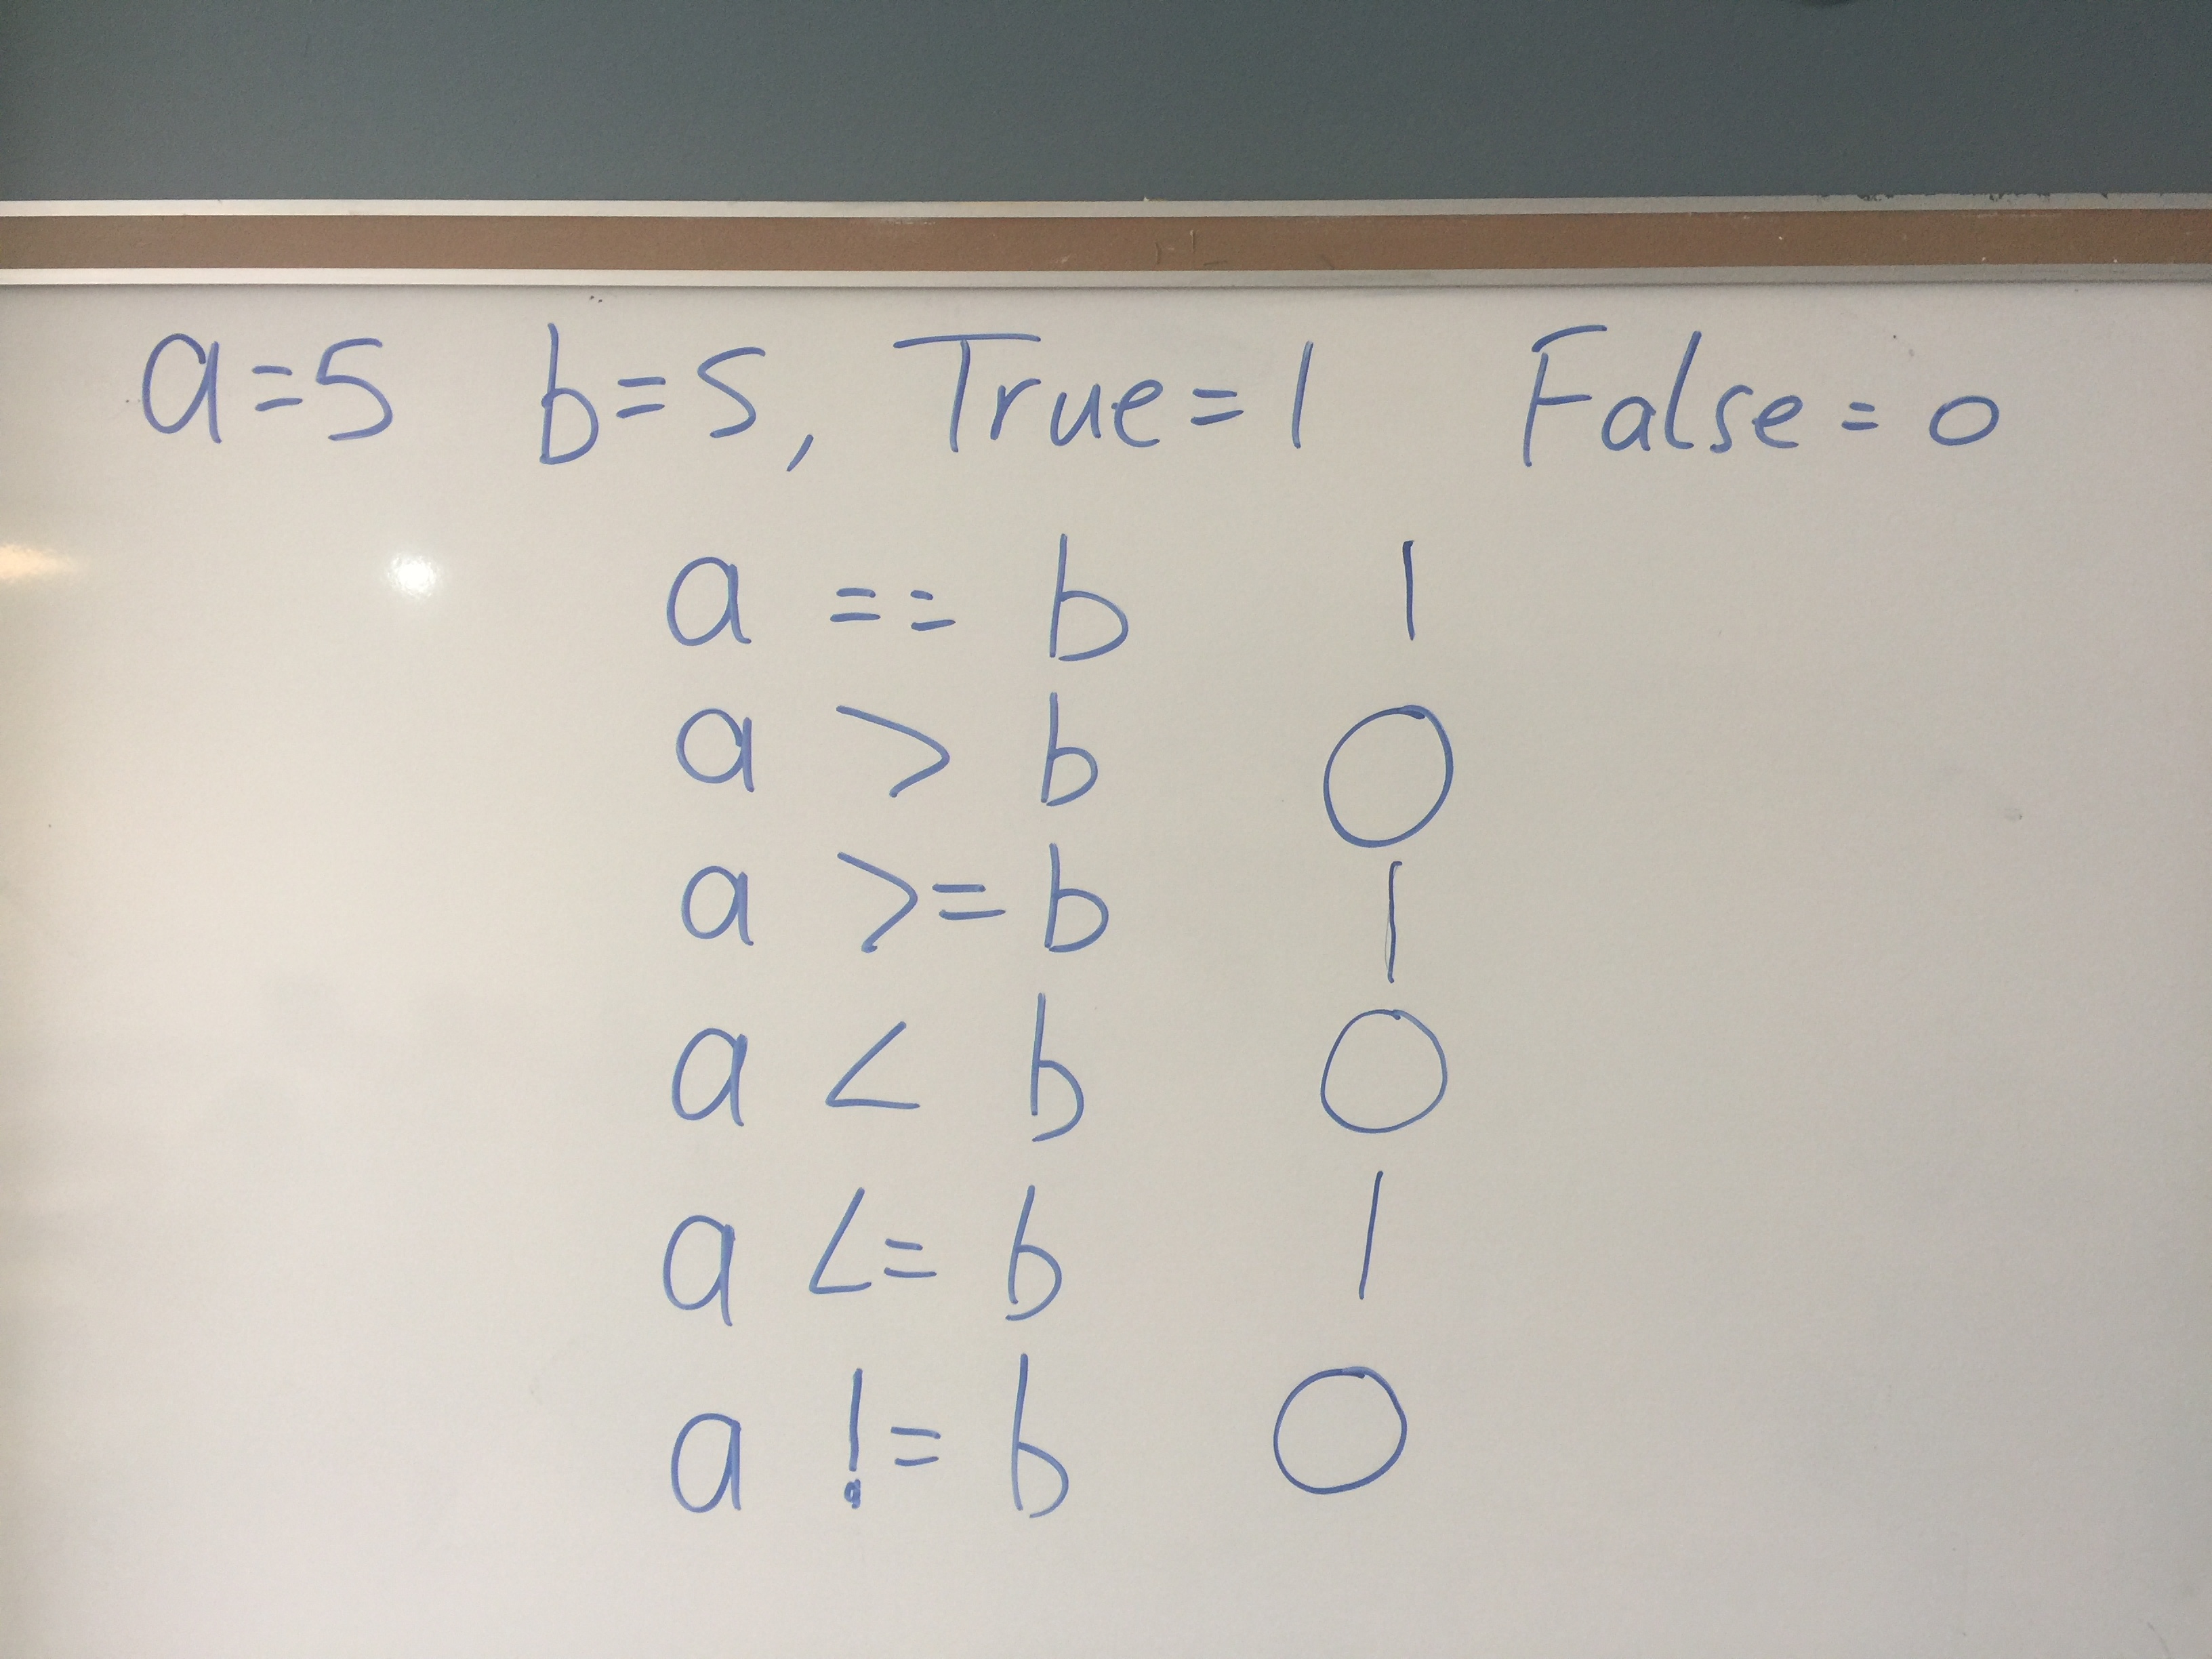 a=5 b=5, True=1 False=0
a == b 1
a > b 0
a >= b 1
a < b 0
a <= b 1
a != b 0